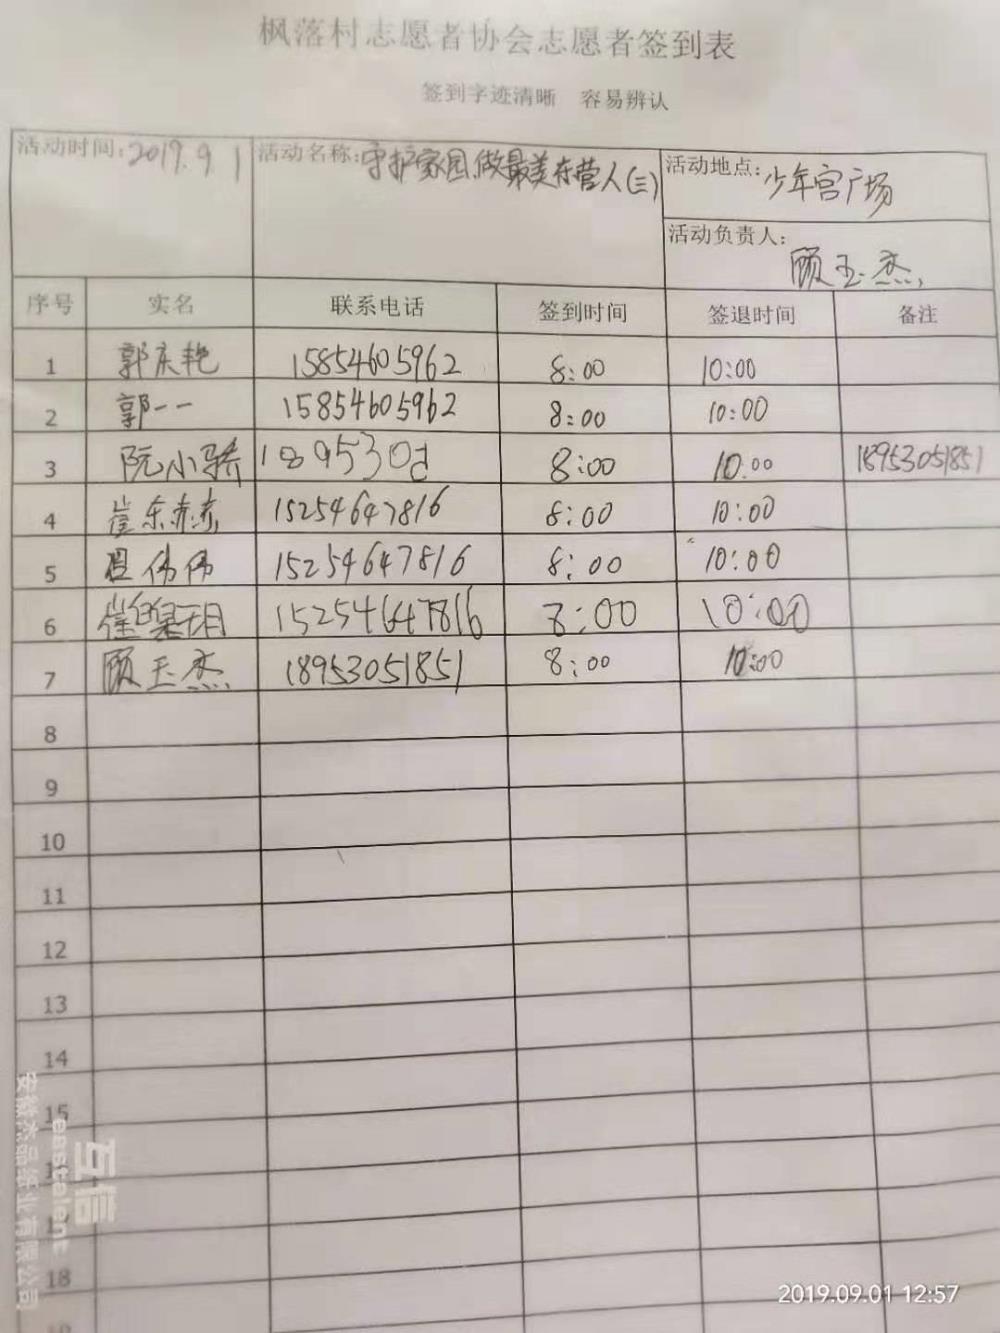 枫落村志愿者协会志愿者签到表
签到字迹清晰 容易辨认
活动时间: 2019.9 1 活动名称: 守护家园,做最美东营人(三) 活动地点: 少年宫广场
活动负责人: 顾玉杰
序号 实名 联系电话 签到时间 签退时间 备注
1 郭庆艳 15854605962 8:00 10:00
2 郭一一 15854605962 8:00 10:00
3 阮小骄 189530 8:00 10:00 18953051851
4 崔东赤 15254647816 8:00 10:00
5 伟伟 15254647816 8:00 10:00
6 崔 15254647816 8:00 10:00
7 顾玉杰 18953051851 8:00 10:00
8
9
10
11
12
13
14
15
17
18
互信
eastalent
安徽杰品纸业有限公司
2019.09.01 12:57